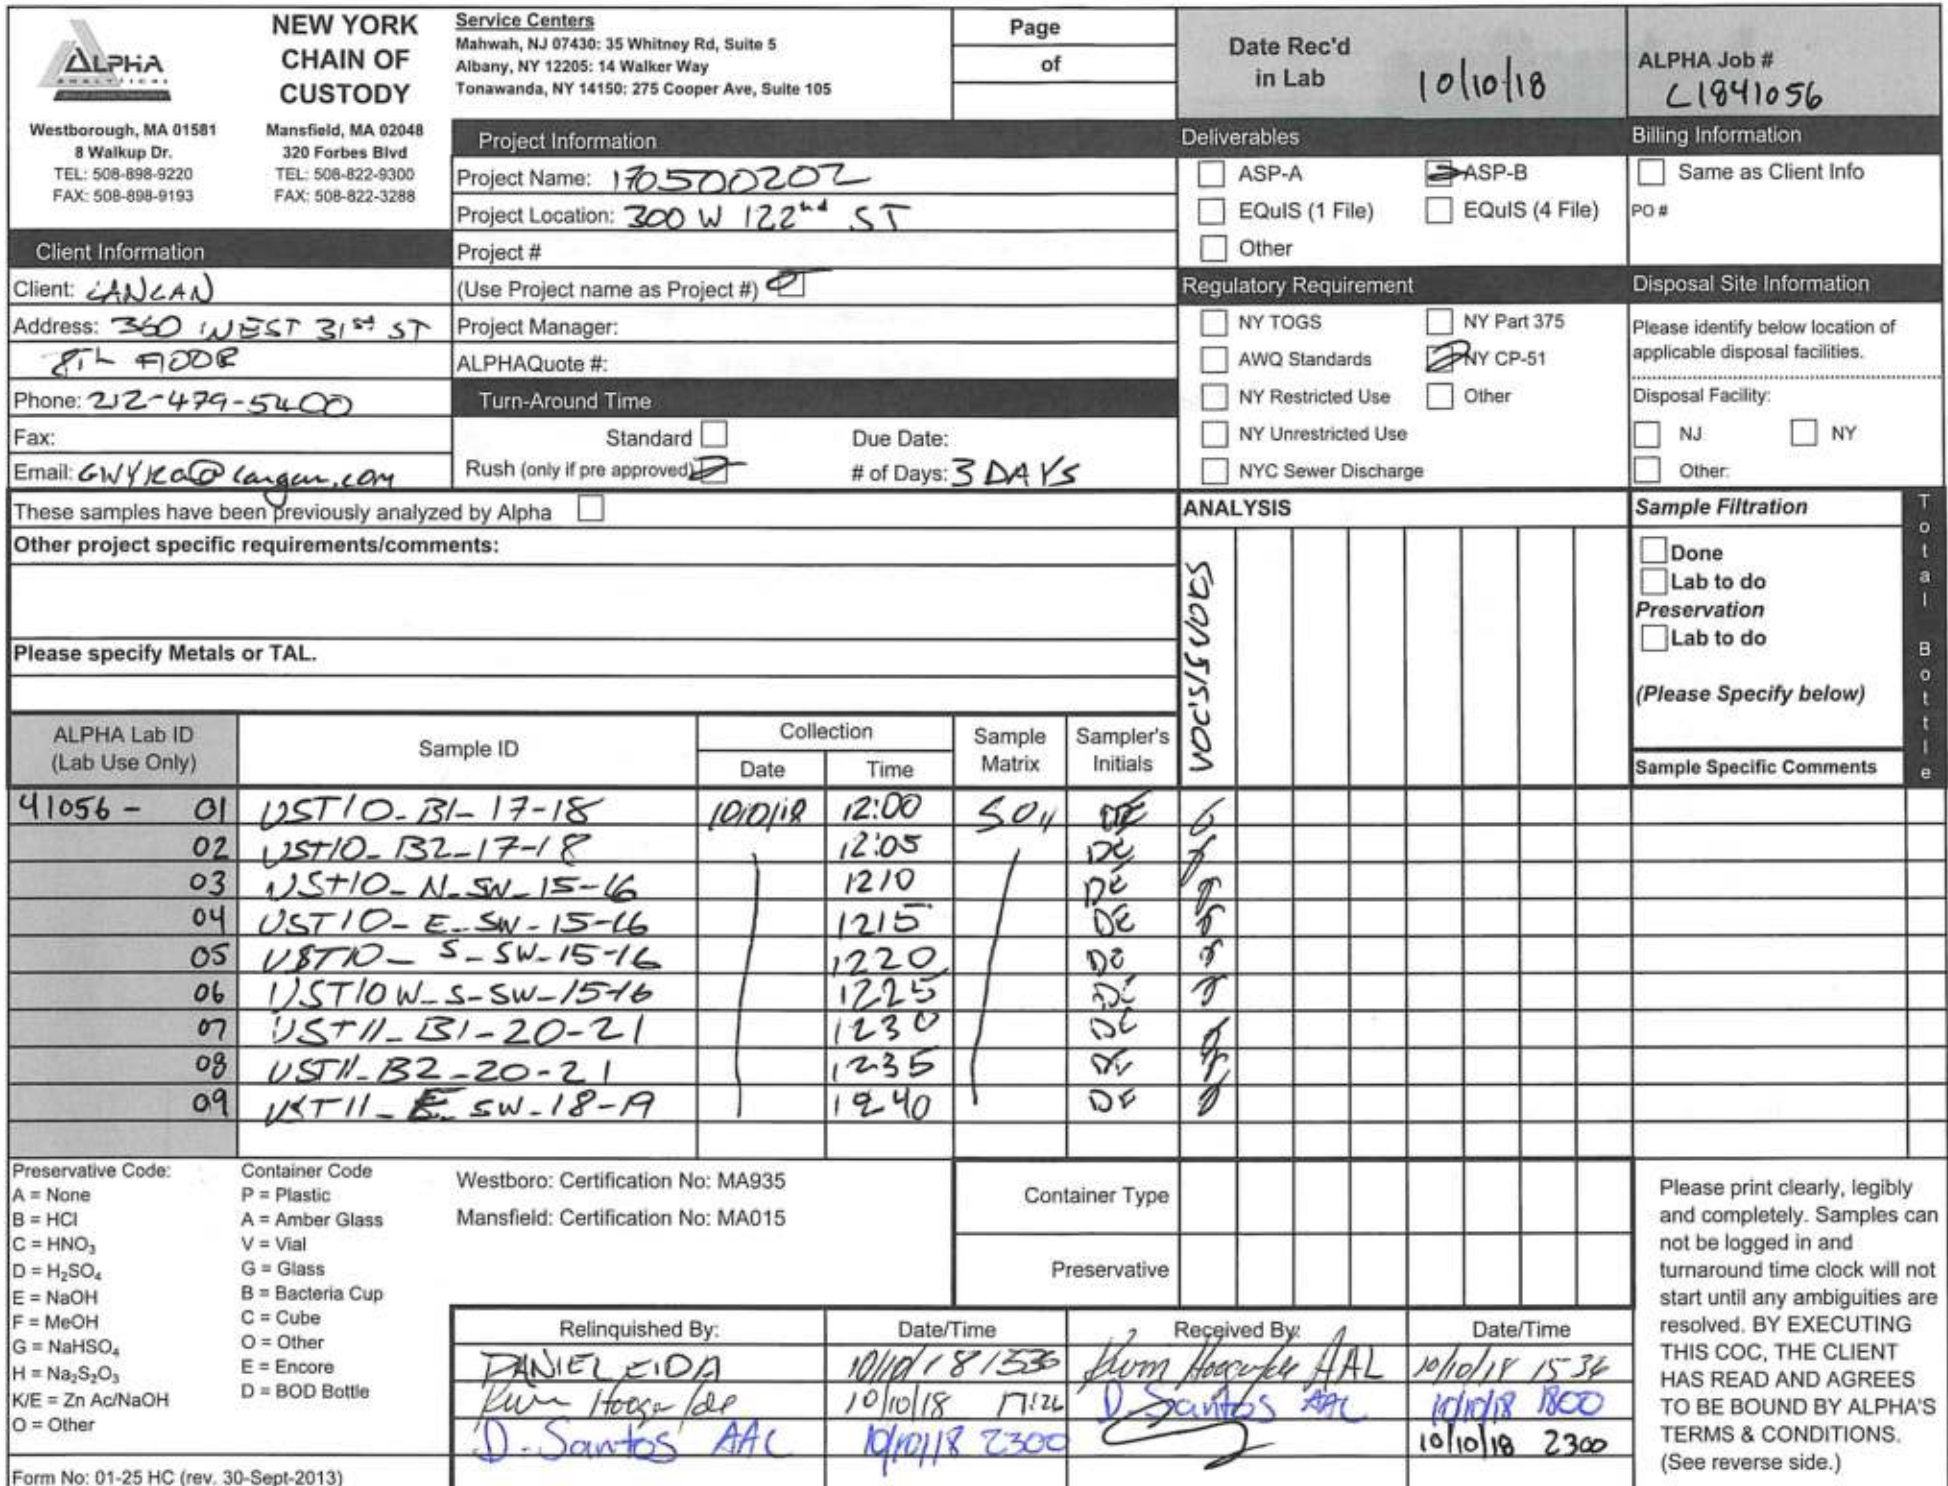 ALPHA
ANALYTICAL
NEW YORK
CHAIN OF
CUSTODY
Westborough, MA 01581
8 Walkup Dr.
TEL: 508-898-9220
FAX: 508-898-9193
Mansfield, MA 02048
320 Forbes Blvd
TEL: 508-822-9300
FAX: 508-822-3288
Service Centers
Mahwah, NJ 07430: 35 Whitney Rd, Suite 5
Albany, NY 12205: 14 Walker Way
Tonawanda, NY 14150: 275 Cooper Ave, Suite 105
Page
of
Date Rec'd
in Lab 10/10/18
ALPHA Job #
L1841056
Project Information
Project Name: 170500202
Project Location: 300 W 122nd ST
Project #
(Use Project name as Project #)
Project Manager:
ALPHAQuote #:
Client Information
Client: LANGAN
Address: 360 WEST 31st ST
8TH FLOOR
Phone: 212-479-5400
Fax:
Email: @langan.com
Turn-Around Time
Standard Due Date:
Rush (only if pre approved) # of Days: 3 DAYS
Deliverables
ASP-A ASP-B
EQuIS (1 File) EQuIS (4 File)
Other
Regulatory Requirement
NY TOGS NY Part 375
AWQ Standards NY CP-51
NY Restricted Use Other
NY Unrestricted Use
NYC Sewer Discharge
Billing Information
Same as Client Info
PO #
Disposal Site Information
Please identify below location of
applicable disposal facilities.
Disposal Facility:
NJ NY
Other:
These samples have been previously analyzed by Alpha
Other project specific requirements/comments:
Please specify Metals or TAL.
ANALYSIS
VOCS/SVOCS
Sample Filtration
Done
Lab to do
Preservation
Lab to do
(Please Specify below)
Sample Specific Comments
Total Bottle
ALPHA Lab ID
(Lab Use Only)
Sample ID
Collection
Date Time
Sample
Matrix
Sampler's
Initials
41056 - 01 UST10_B1_17-18 10/10/18 12:00 SOil DE
02 UST10_B2_17-18 12:05 DE
03 UST10_N_SW_15-16 1210 DE
04 UST10_E_SW_15-16 1215 DE
05 UST10_S_SW_15-16 1220 DE
06 UST10W_S_SW_15-16 1225 DE
07 UST11_B1_20-21 1230 DE
08 UST11_B2_20-21 1235 DE
09 UST11_E_SW_18-19 1240 DE
Preservative Code:
A = None
B = HCl
C = HNO₃
D = H₂SO₄
E = NaOH
F = MeOH
G = NaHSO₄
H = Na₂S₂O₃
K/E = Zn Ac/NaOH
O = Other
Container Code
P = Plastic
A = Amber Glass
V = Vial
G = Glass
B = Bacteria Cup
C = Cube
O = Other
E = Encore
D = BOD Bottle
Westboro: Certification No: MA935
Mansfield: Certification No: MA015
Container Type
Preservative
Relinquished By: Date/Time Received By: Date/Time
DANIEL EIDA 10/10/18 AAL 10/10/18
10/10/18 17:26 D. Santos AAL 10/10/18 1800
D. Santos AAL 10/10/18 2300 10/10/18 2300
Please print clearly, legibly
and completely. Samples can
not be logged in and
turnaround time clock will not
start until any ambiguities are
resolved. BY EXECUTING
THIS COC, THE CLIENT
HAS READ AND AGREES
TO BE BOUND BY ALPHA'S
TERMS & CONDITIONS.
(See reverse side.)
Form No: 01-25 HC (rev. 30-Sept-2013)